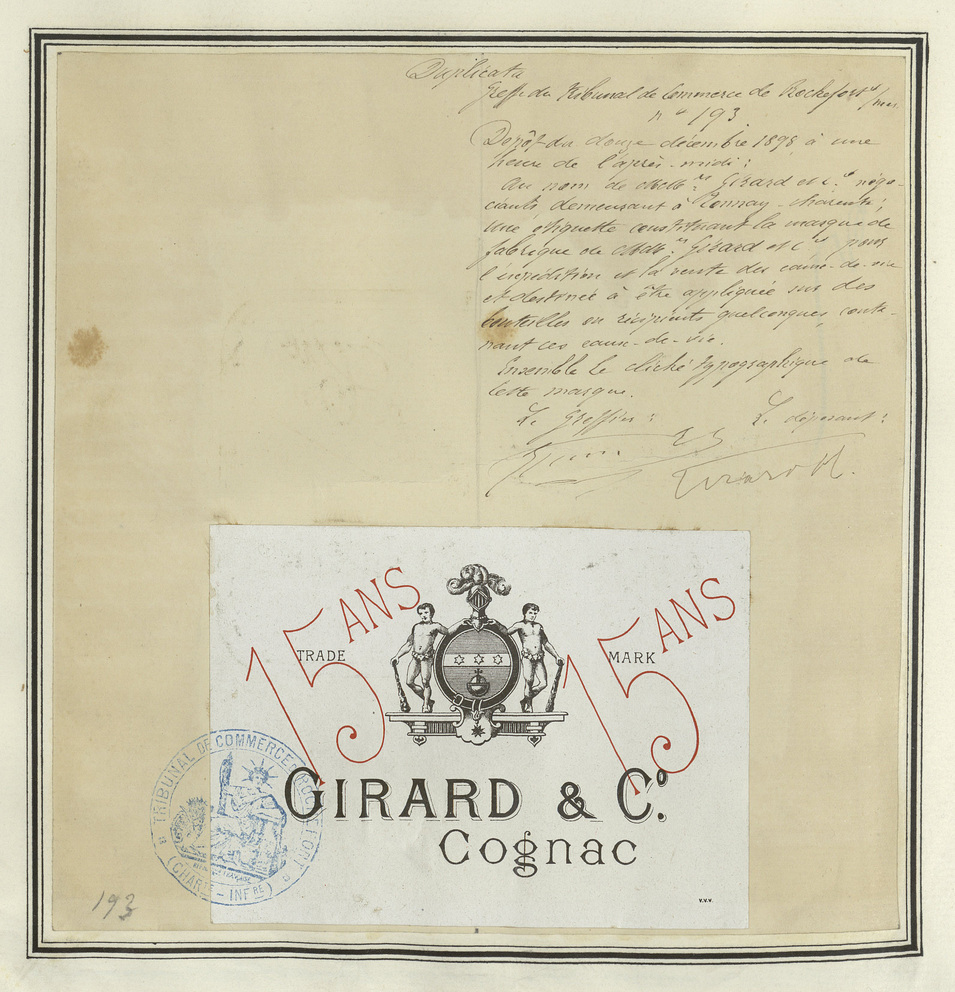 Duplicata
Greffe du Tribunal de Commerce de Rochefort s/mer
n° 193
Dépôt du douze décembre 1898 à une
heure de l'après-midi :
Au nom de MM.rs Girard et C.ie négo-
ciants, demeurant à Tonnay-Charente ;
Une étiquette constituant la marque de
fabrique de MM.rs Girard et Cie pour
l'expédition et la vente des eaux-de-vie
et destinée à être appliquée sur des
bouteilles ou récipients quelconques conte-
nant ces eaux-de-vie.
Ensemble le cliché typographique de
cette marque.
Le Greffier : Le déposant :
Girard
15 ANS 15 ANS
TRADE MARK
GIRARD & Co.
Cognac
V.V.V.
TRIBUNAL DE COMMERCE ROCHEFORT
(CHARTE-INFRE)
193